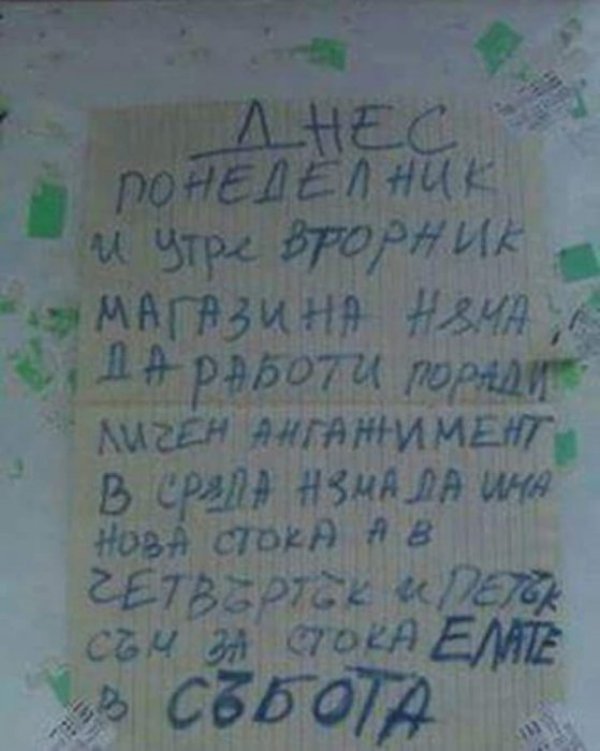 ДНЕС
ПОНЕДЕЛНИК
и утре ВТОРНИК
МАГАЗИНА НЯМА
ДА РАБОТИ ПОРАДИ
ЛИЧЕН АНГАЖИМЕНТ
В СРЯДА НЯМА ДА ИМА
НОВА СТОКА А В
ЧЕТВЪРТЪК и ПЕТЪК
СЪМ ЗА СТОКА ЕЛАТЕ
В СЪБОТА